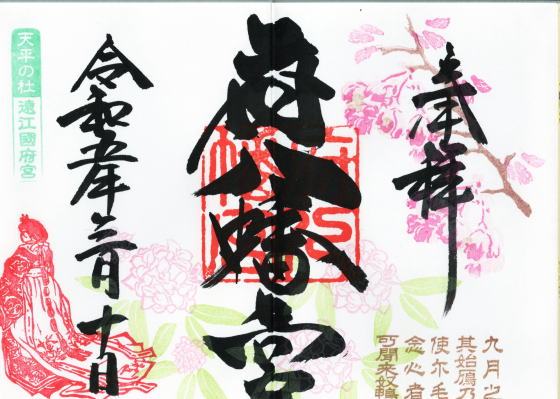 奉拝
府八幡宮
令和五年三月十日
天平の杜 遠江國府宮
九月之
其始鴈乃
使尓毛
念心者
可聞来奴鴨